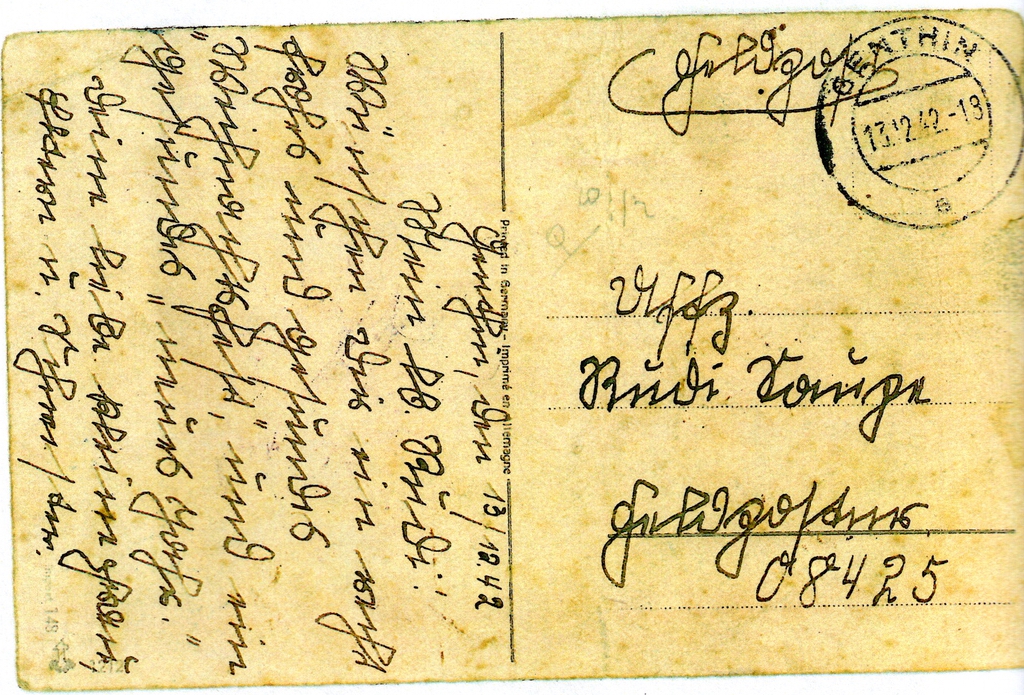 Feldpost
GENTHIN
13.12.42.-18
a
Uffz.
Rudi
Feldpostnr.
08425
Printed in Germany - Imprimé en Allemagne
Genthin, den 13/12.42
Mein lb. Rudi!
Wünschen Dir ein recht
frohes und gesundes
Weihnachtsfest, und ein
"gesundes" neues Jahr."
Deine liebe kleine
Eltern u.